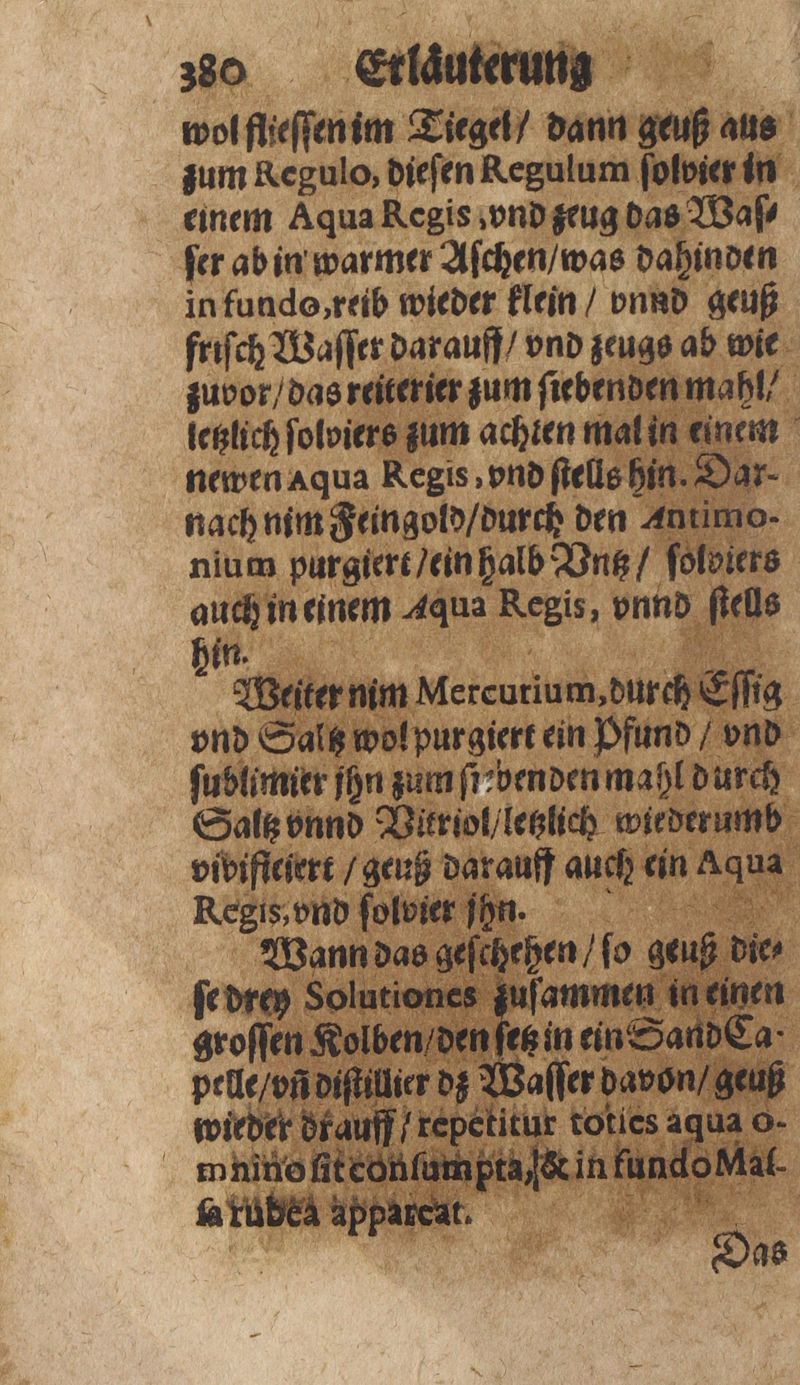 380 Erläuterung
wol fliessen im Tiegel/ dann geuß aus
zum Regulo, diesen Regulum solvier in
einem Aqua Regis, vnd zeug das Was-
ser ab in warmer Aschen/was dahinden
in fundo, reib wieder klein / vnnd geuß
frisch Wasser darauff/ vnd zeugs ab wie
zuvor/das reiterier zum siebenden mahl/
letzlich solviers zum achten mal in einem
newen Aqua Regis, vnd stells hin. Dar-
nach nim Feingold/durch den Antimo-
nium purgiert/ein halb Vntz/ solviers
auch in einem Aqua Regis, vnnd stells
hin.
Weiter nim Mercurium, durch Essig
vnd Saltz wol purgiert ein Pfund / vnd
sublimier jhn zum siebenden mahl durch
Saltz vnnd Vitriol/letzlich wiederumb
vivificiert / geuß darauff auch ein Aqua
Regis, vnd solvier jhn.
Wann das geschehen/so geuß die-
se drey Solutiones zusammen in einen
grossen Kolben/den setz in ein Sand Ca-
pelle/vñ distillier dz Wasser davon/ geuß
wieder drauff/ repetitur toties aqua o-
mnino sit consumpta, & in fundo Mas-
sa rubea appareat.
Das